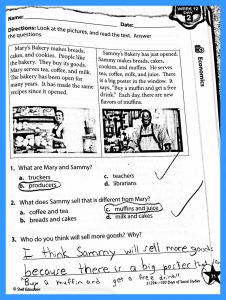 WEEK 12
DAY
2
Name:
Date:
Directions: Look at the pictures, and read the text. Answer
the questions.
Economics
Mary's Bakery makes breads,
cakes, and cookies. People like
the bakery. They buy its goods.
Mary serves tea, coffee, and milk.
The bakery has been open for
many years. It has made the same
recipes since it opened.
Sammy's Bakery has just opened.
Sammy makes breads, cakes,
cookies, and muffins. He serves
tea, coffee, milk, and juice. There
is a big poster in the window. It
says, "Buy a muffin and get a free
drink." Each day, there are new
flavors of muffins.
1. What are Mary and Sammy?
a. truckers
b. producers
c. teachers
d. librarians
2. What does Sammy sell that is different from Mary?
a. coffee and tea
b. breads and cakes
c. muffins and juice
d. milk and cakes
3. Who do you think will sell more goods? Why?
I think Sammy will sell more goods
because there is a big poster that
Buy a muffin and get a free drink
© Shell Education
180 Days of Social Studies